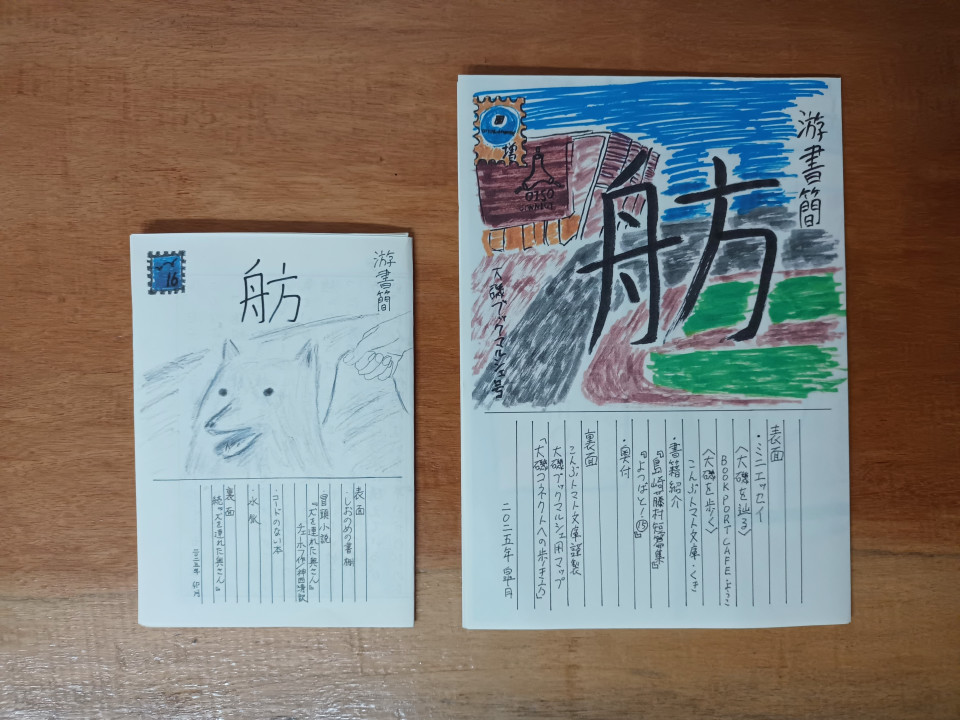 游書簡
舫
16
表面
・しおのめの書棚
冒頭小説
『犬を連れた奥さん』
チェーホフ作/神西清訳
・コードのない本
裏面
続『犬を連れた奥さん』
二〇二五年 卯月
游書簡
舫
増
OISO
CONNECT
大磯ブックマルシェ号
表面
・ミニエッセイ
〈大磯を辿る〉
BOOKPORT CAFE・よっこ
〈大磯を歩く〉
こんぶトマト文庫・くき
・書籍紹介
『島崎藤村短篇集』
『よつばと!⑮』
・奥付
裏面
こんぶトマト文庫謹製
大磯ブックマルシェ用マップ
「大磯コネクトへの歩き方」
二〇二五年 皐月